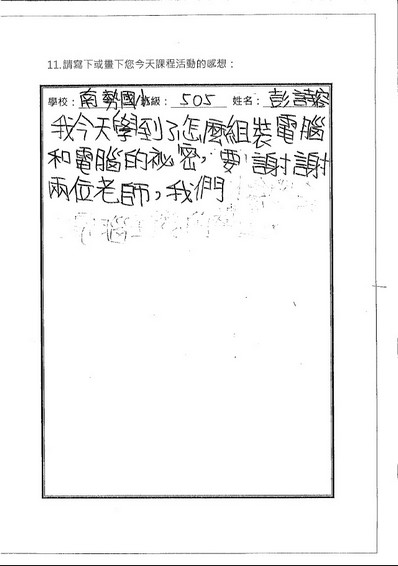 11.請寫下或畫下您今天課程活動的感想：
學校：南勢國小 班級：505 姓名：彭詩容
我今天學到了怎麼組裝電腦
和電腦的祕密，要謝謝
兩位老師，我們